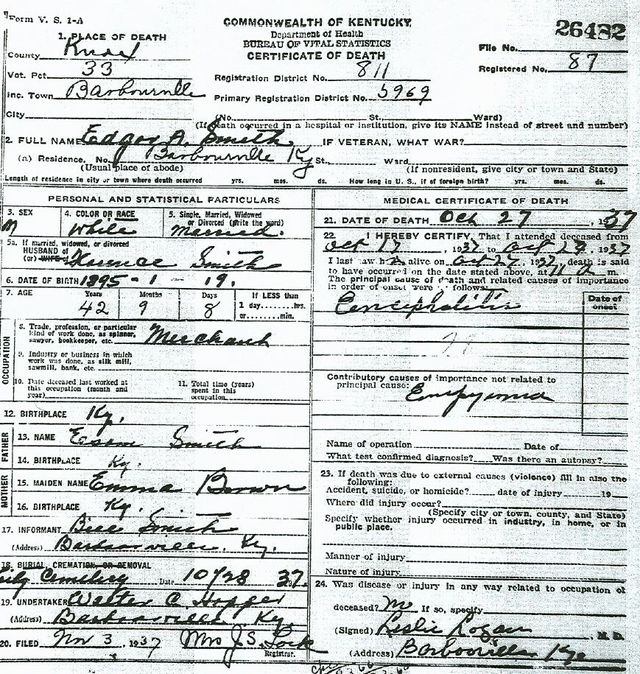 Form V. S. 1-A
COMMONWEALTH OF KENTUCKY
Department of Health
BUREAU OF VITAL STATISTICS
CERTIFICATE OF DEATH
26482
File No.
Registered No. 87
1. PLACE OF DEATH
County Knox
Vot. Pct 33
Inc. Town Barbourville
City
Registration District No. 811
Primary Registration District No. 5969
(No. St. Ward)
(If death occurred in a hospital or institution, give its NAME instead of street and number)
2. FULL NAME Edgar A. Smith IF VETERAN, WHAT WAR?
(a) Residence. No. Barbourville Ky St. Ward
(Usual place of abode) (If nonresident, give city or town and State)
Length of residence in city or town where death occurred yrs. mos. ds. How long in U. S., if of foreign birth? yrs. mos. ds.
PERSONAL AND STATISTICAL PARTICULARS
3. SEX M
4. COLOR OR RACE White
5. Single, Married, Widowed or Divorced (write the word) Married
5a. If married, widowed, or divorced
HUSBAND of
(or) WIFE of Smith
6. DATE OF BIRTH 1895-1-19.
7. AGE Years 42 Months 9 Days 8 If LESS than 1 day hrs. or min.
OCCUPATION
8. Trade, profession, or particular kind of work done, as spinner, sawyer, bookkeeper, etc. Merchant
9. Industry or business in which work was done, as silk mill, sawmill, bank, etc.
10. Date deceased last worked at this occupation (month and year)
11. Total time (years) spent in this occupation
12. BIRTHPLACE Ky.
FATHER
13. NAME Smith
14. BIRTHPLACE Ky.
MOTHER
15. MAIDEN NAME Emma Brown
16. BIRTHPLACE Ky.
17. INFORMANT Bill Smith
(Address) Barbourville, Ky.
18. BURIAL, CREMATION, OR REMOVAL
Cemetery Date 10/28 37.
19. UNDERTAKER Walter C Hopper
(Address) Barbourville Ky
20. FILED Nov 3, 1937 Mrs J. S. Lock
Registrar.
MEDICAL CERTIFICATE OF DEATH
21. DATE OF DEATH Oct 27, 1937
22. I HEREBY CERTIFY, That I attended deceased from
Oct 17, 1937 to Oct 1937
I last saw alive on Oct 27, 1937, death is said
to have occurred on the date stated above, at 11 m.
The principal cause of death and related causes of importance
in order of onset were as follows:
Date of onset
Encephalitis
Contributory causes of importance not related to
principal cause:
Empyema
Name of operation Date of
What test confirmed diagnosis? Was there an autopsy?
23. If death was due to external causes (violence) fill in also the
following:
Accident, suicide, or homicide? date of injury 19
Where did injury occur?
(Specify city or town, county, and State)
Specify whether injury occurred in industry, in home, or in
public place.
Manner of injury
Nature of injury
24. Was disease or injury in any way related to occupation of
deceased? no If so, specify
(Signed) Leslie Logan M. D.
(Address) Barbourville Ky